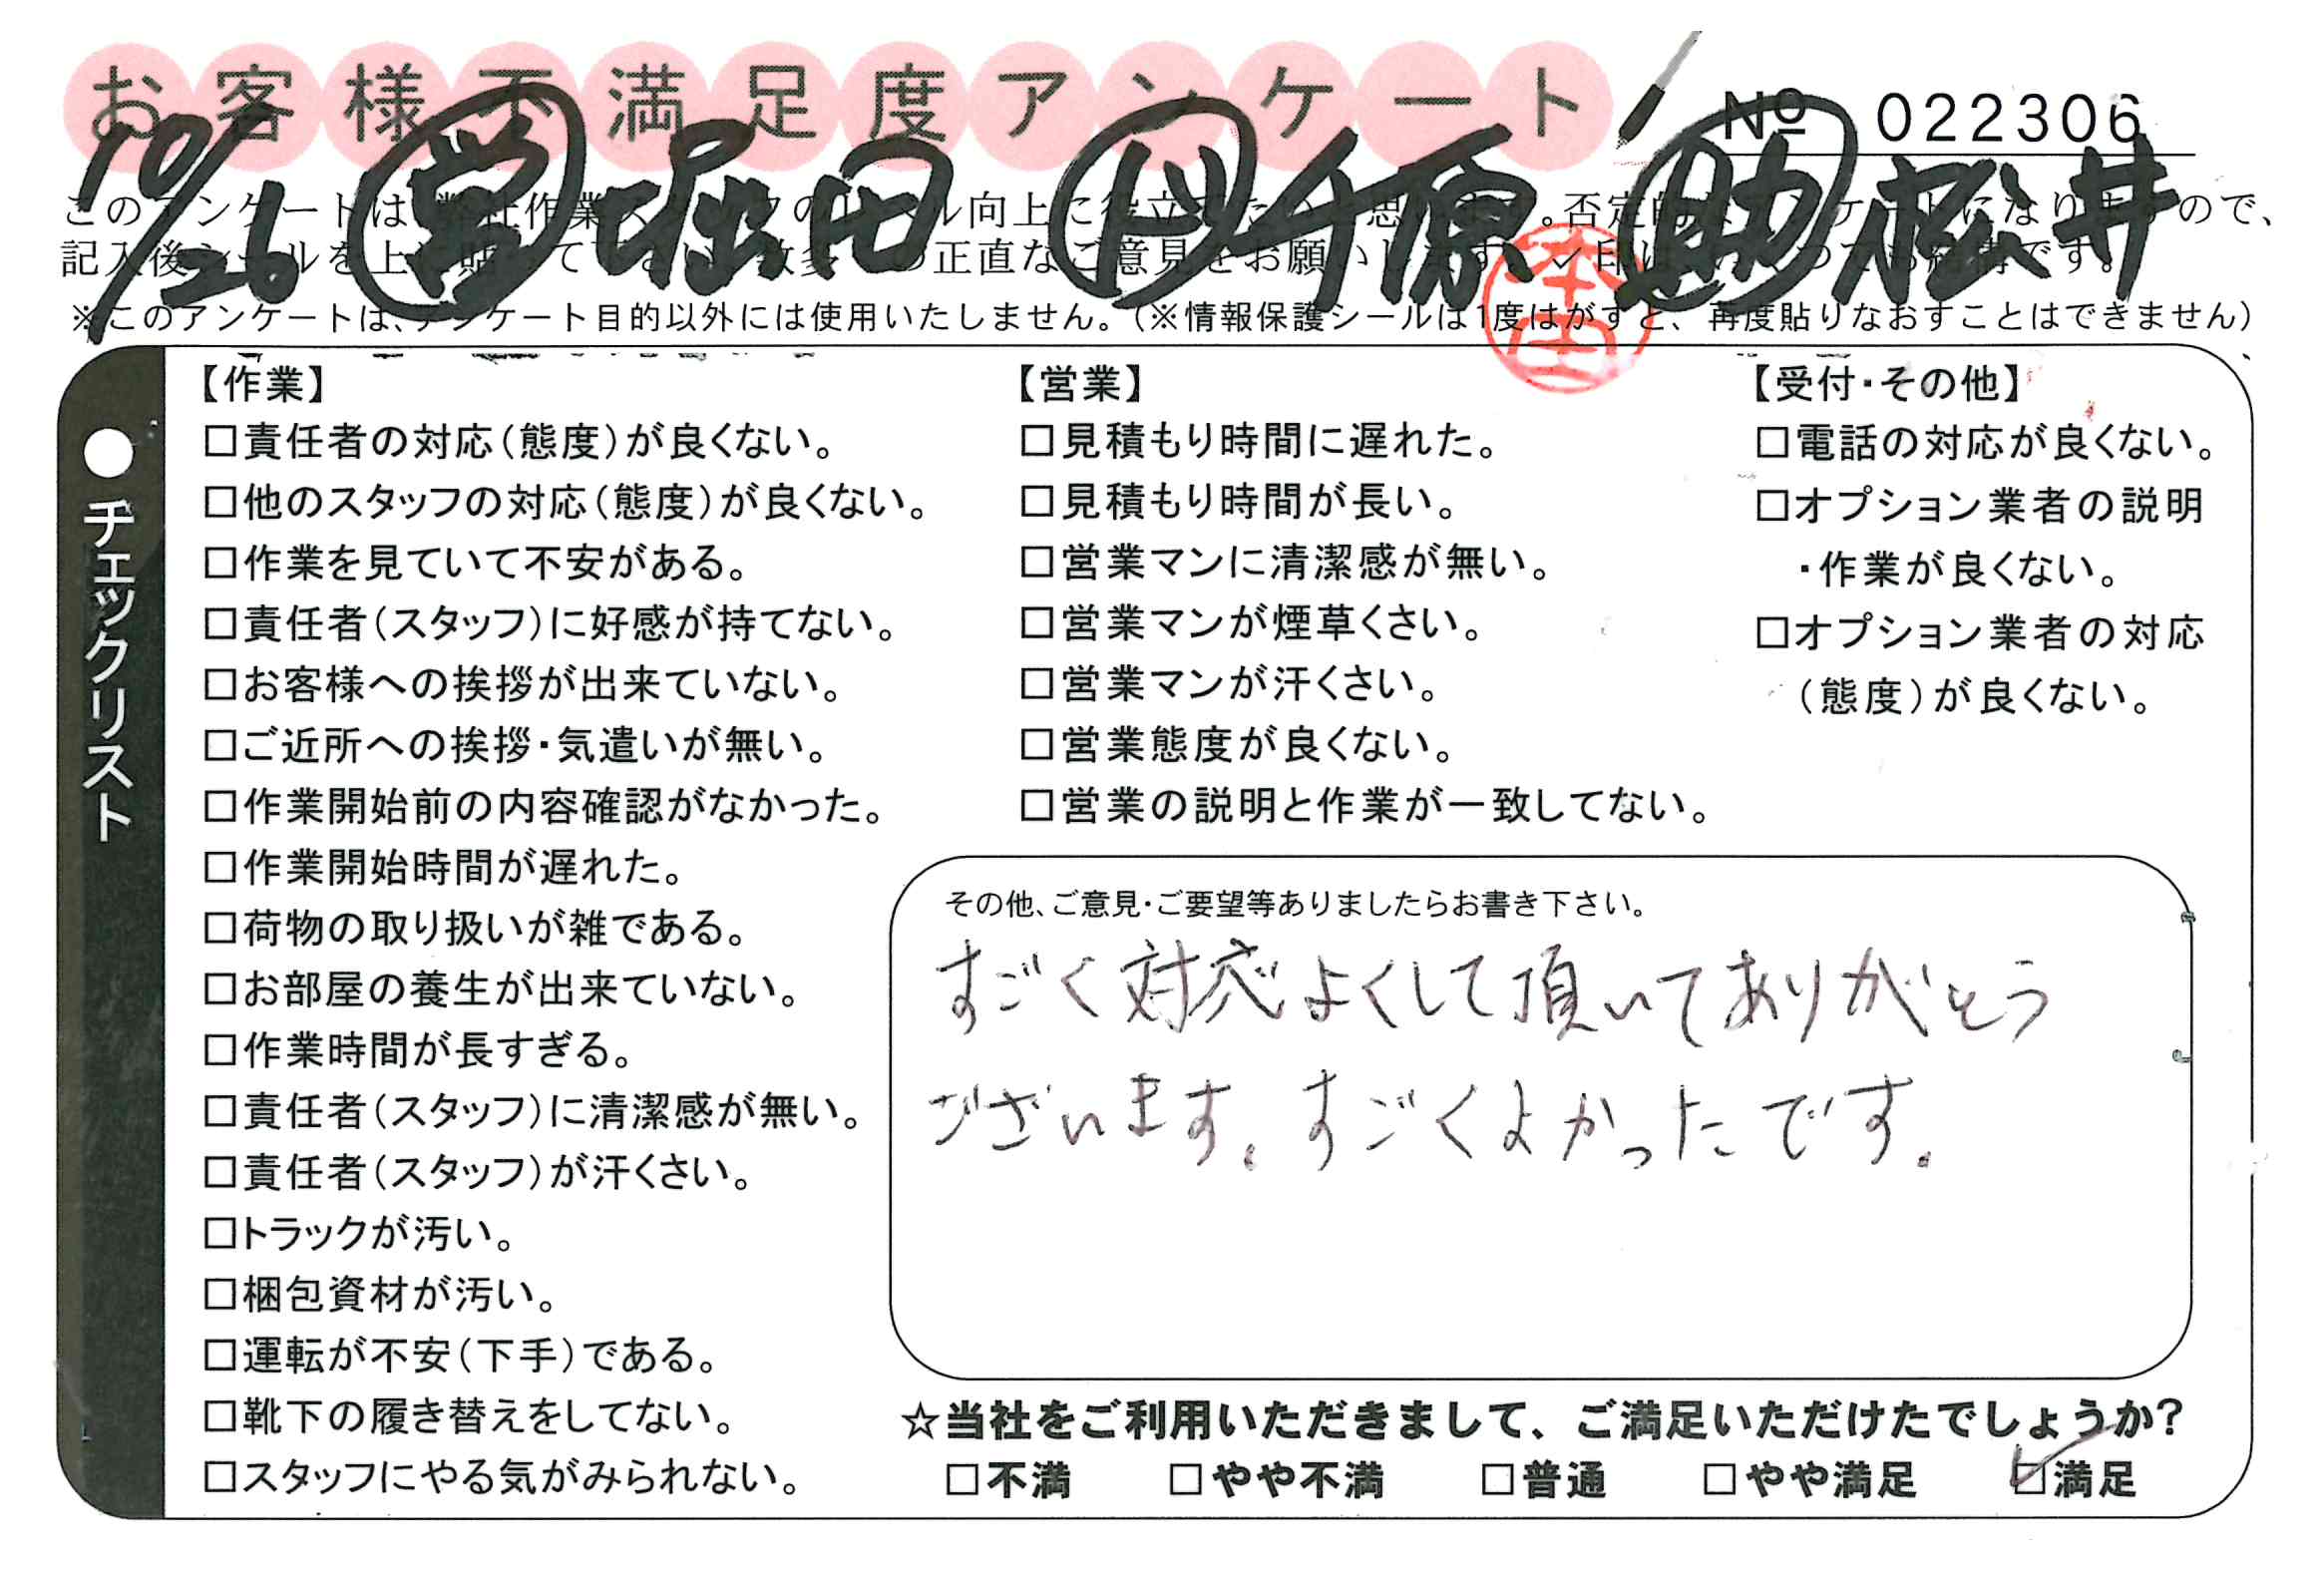 お客様不満足度アンケート
№ 022306
10/26 営 堀田 ド 千原 助 松井
このアンケートは、弊社作業 向上に役立 思 。否定的 ケートになりますので、
記入後シールを上 貼 て下さい。 数多 の正直なご意見をお願いします。✓印は で す。
※このアンケートは、アンケート目的以外には使用いたしません。(※情報保護シールは1度はがすと、再度貼りなおすことはできません)
●チェックリスト
【作業】
□責任者の対応(態度)が良くない。
□他のスタッフの対応(態度)が良くない。
□作業を見ていて不安がある。
□責任者(スタッフ)に好感が持てない。
□お客様への挨拶が出来ていない。
□ご近所への挨拶・気遣いが無い。
□作業開始前の内容確認がなかった。
□作業開始時間が遅れた。
□荷物の取り扱いが雑である。
□お部屋の養生が出来ていない。
□作業時間が長すぎる。
□責任者(スタッフ)に清潔感が無い。
□責任者(スタッフ)が汗くさい。
□トラックが汚い。
□梱包資材が汚い。
□運転が不安(下手)である。
□靴下の履き替えをしてない。
□スタッフにやる気がみられない。
【営業】
□見積もり時間に遅れた。
□見積もり時間が長い。
□営業マンに清潔感が無い。
□営業マンが煙草くさい。
□営業マンが汗くさい。
□営業態度が良くない。
□営業の説明と作業が一致してない。
【受付・その他】
□電話の対応が良くない。
□オプション業者の説明
・作業が良くない。
□オプション業者の対応
(態度)が良くない。
その他、ご意見・ご要望等ありましたらお書き下さい。
すごく対応よくして頂いてありがとう
ございます。すごくよかったです。
☆当社をご利用いただきまして、ご満足いただけたでしょうか?
□不満 □やや不満 □普通 □やや満足 ☑満足